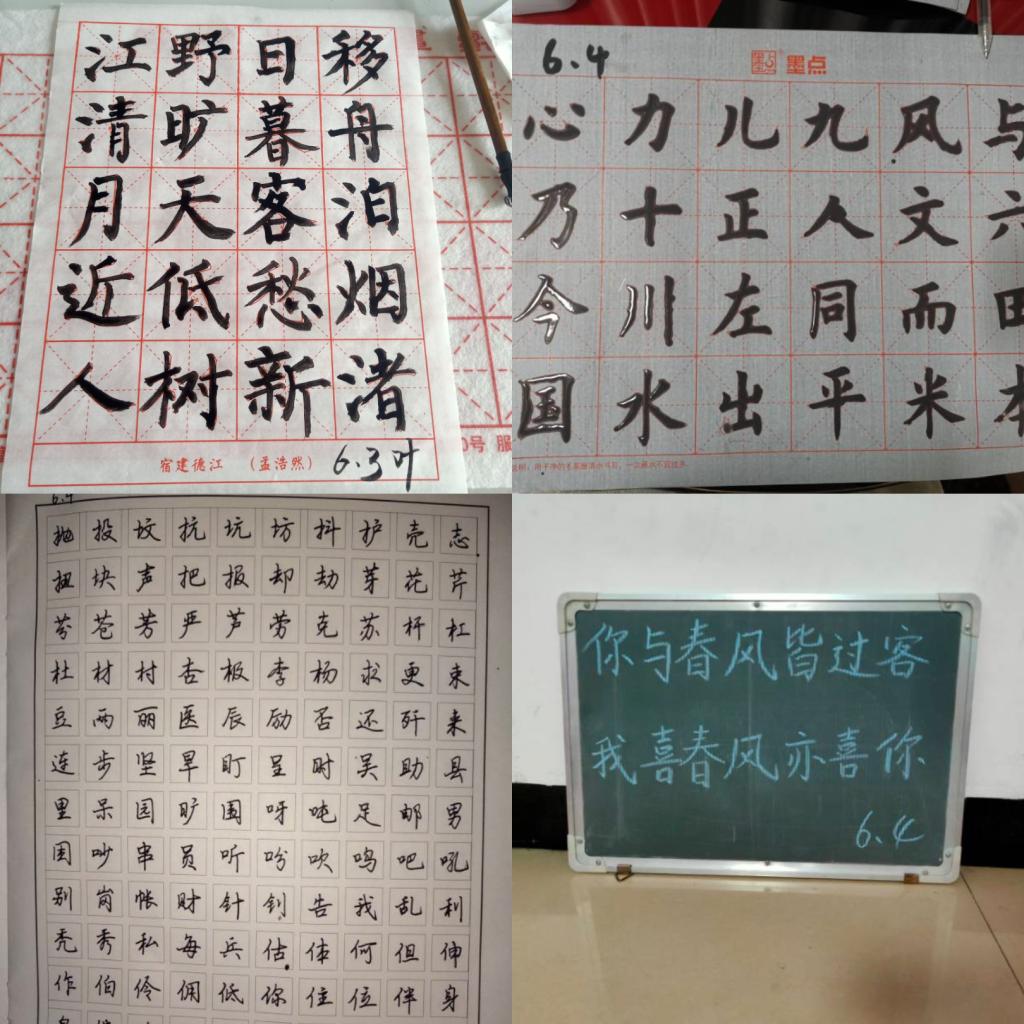 移舟泊烟渚
日暮客愁新
野旷天低树
江清月近人
宿建德江 (孟浩然) 6.3叶
6.4
墨点
心力儿九风与
乃十正人文六
今川左同而田
国水出平米本
6.4
抛投坟抗坑坊抖护壳志
扭块声把报却劫芽花芹
芬苍芳严芦劳克苏杆杠
杜材村杏极李杨求更束
豆两丽医辰励否还歼来
连步坚旱盯呈时吴助县
里呆园旷围呀吨足邮男
困吵串员听吩吹呜吧吼
别岗帐财针钉告我乱利
秃秀私每兵估体何但伸
作伯伶佣低你住位伴身
你与春风皆过客
我喜春风亦喜你
6.4